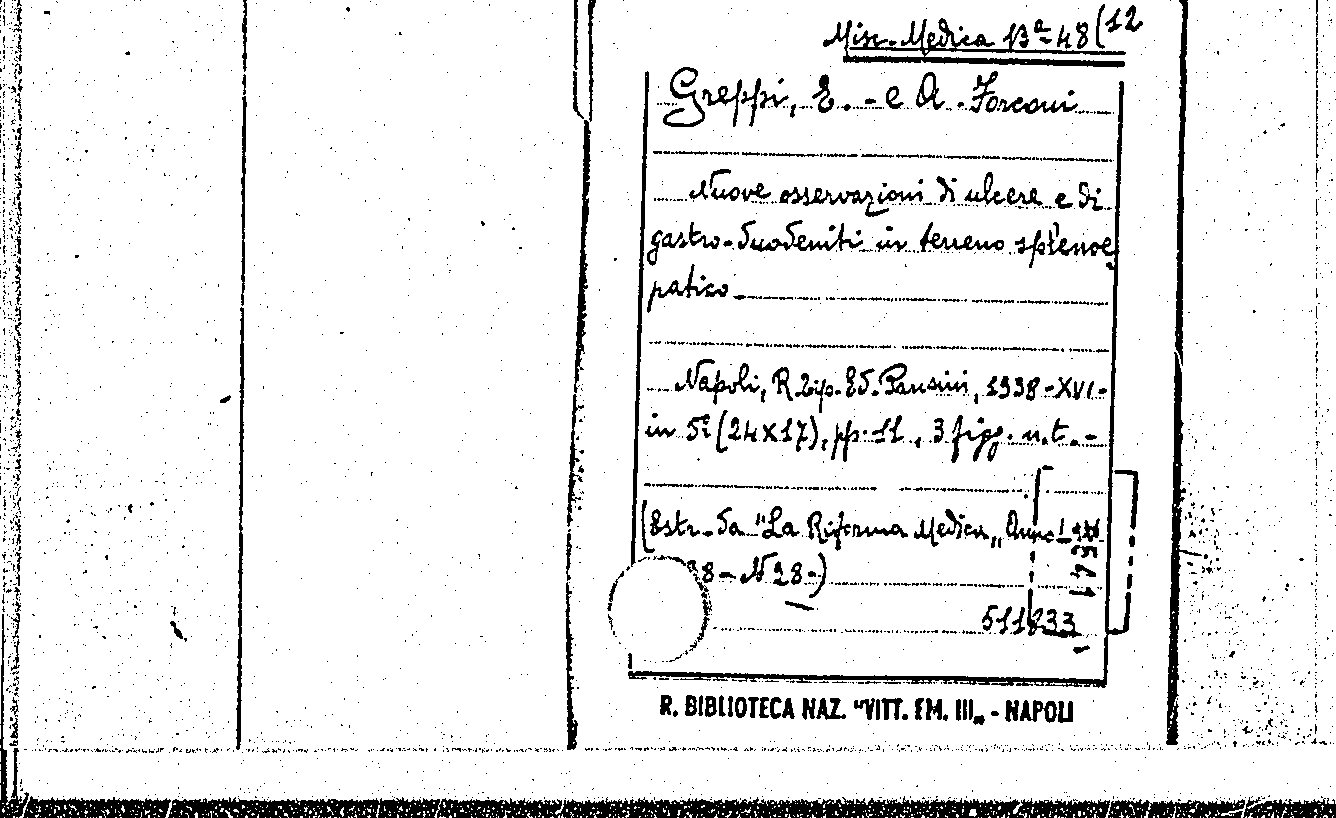 Misc. Medica Bª 48 (12
Greppi, E. - e A. Forconi
Nuove osservazioni di ulcere e di
gastro-duodeniti in terreno splenoe
patico.
Napoli, R. Tip. Ed. Pansini, 1938-XVI-
in 5º (24x17), pp. 11, 3 figg. n.t. -
(Estr. da "La Riforma Medica" Anno
38 - N 28-)
511833
R. BIBLIOTECA NAZ. "VITT. EM. III„ - NAPOLI